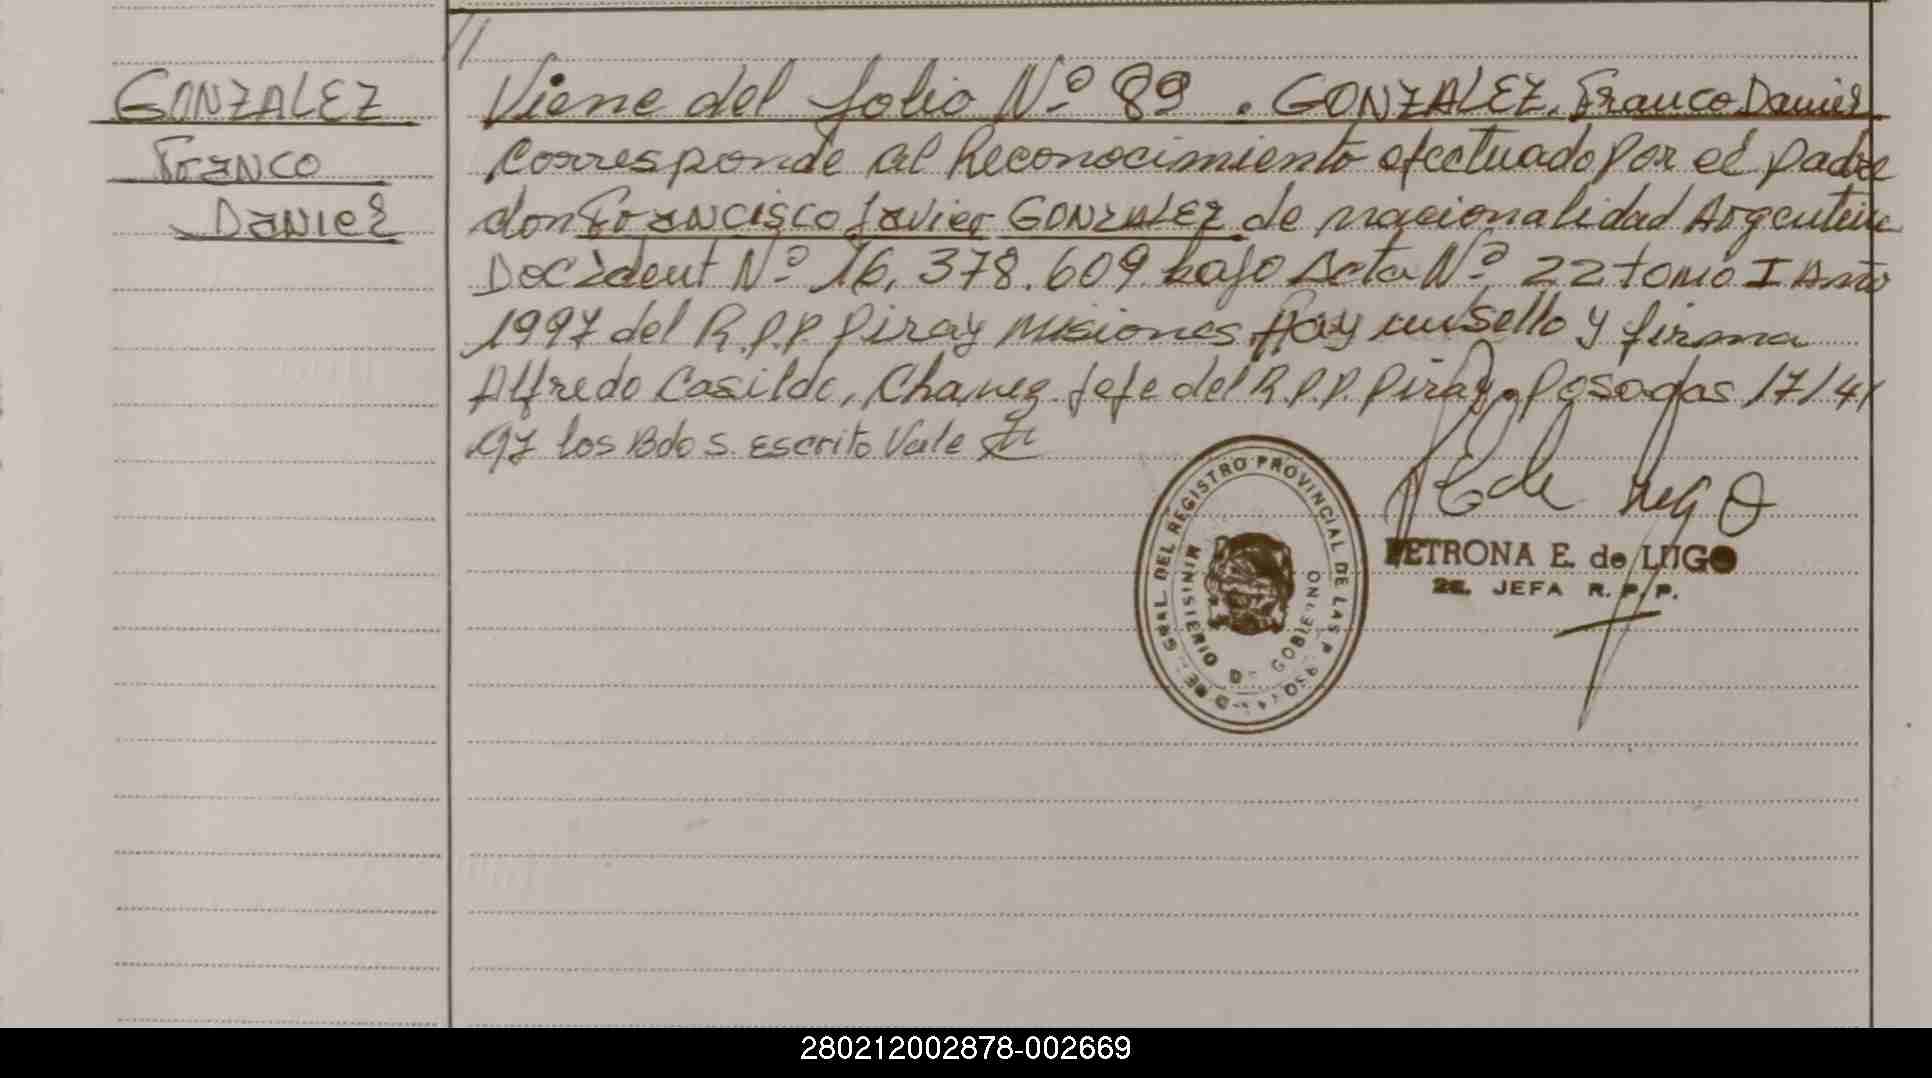 GONZALEZ
FRANCO
DANIEL
//
Viene del folio Nº 89. GONZALEZ, Franco Daniel
Corresponde al Reconocimiento efectuado por el padre
don FRANCISCO Javier GONZALEZ de nacionalidad Argentina
Doc Ident Nº 16.378.609 bajo Acta Nº 22 tomo I Año
1997 del R.P.P. Piray Misiones. Hay un sello y firma
Alfredo Casildo, Chavez Jefe del R.P.P. Piray. Posadas 17/4/
97 los Bdo S. escrito Vale
DE GRAL. DEL REGISTRO PROVINCIAL DE LAS P
MINISTERIO DE GOBIERNO
P E de Lugo
PETRONA E. de LUGO
2E. JEFA R.P.P.
280212002878-002669